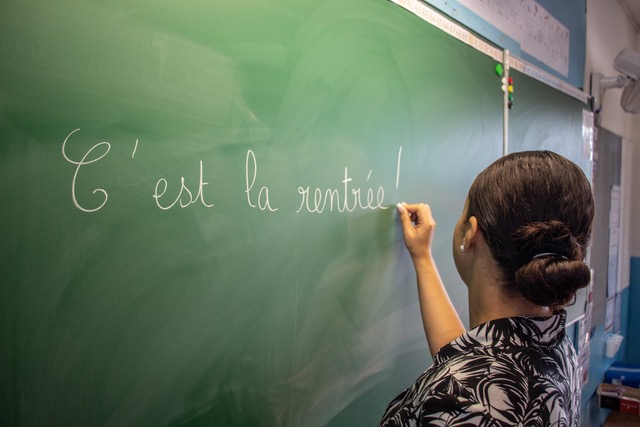 C'est la rentrée!